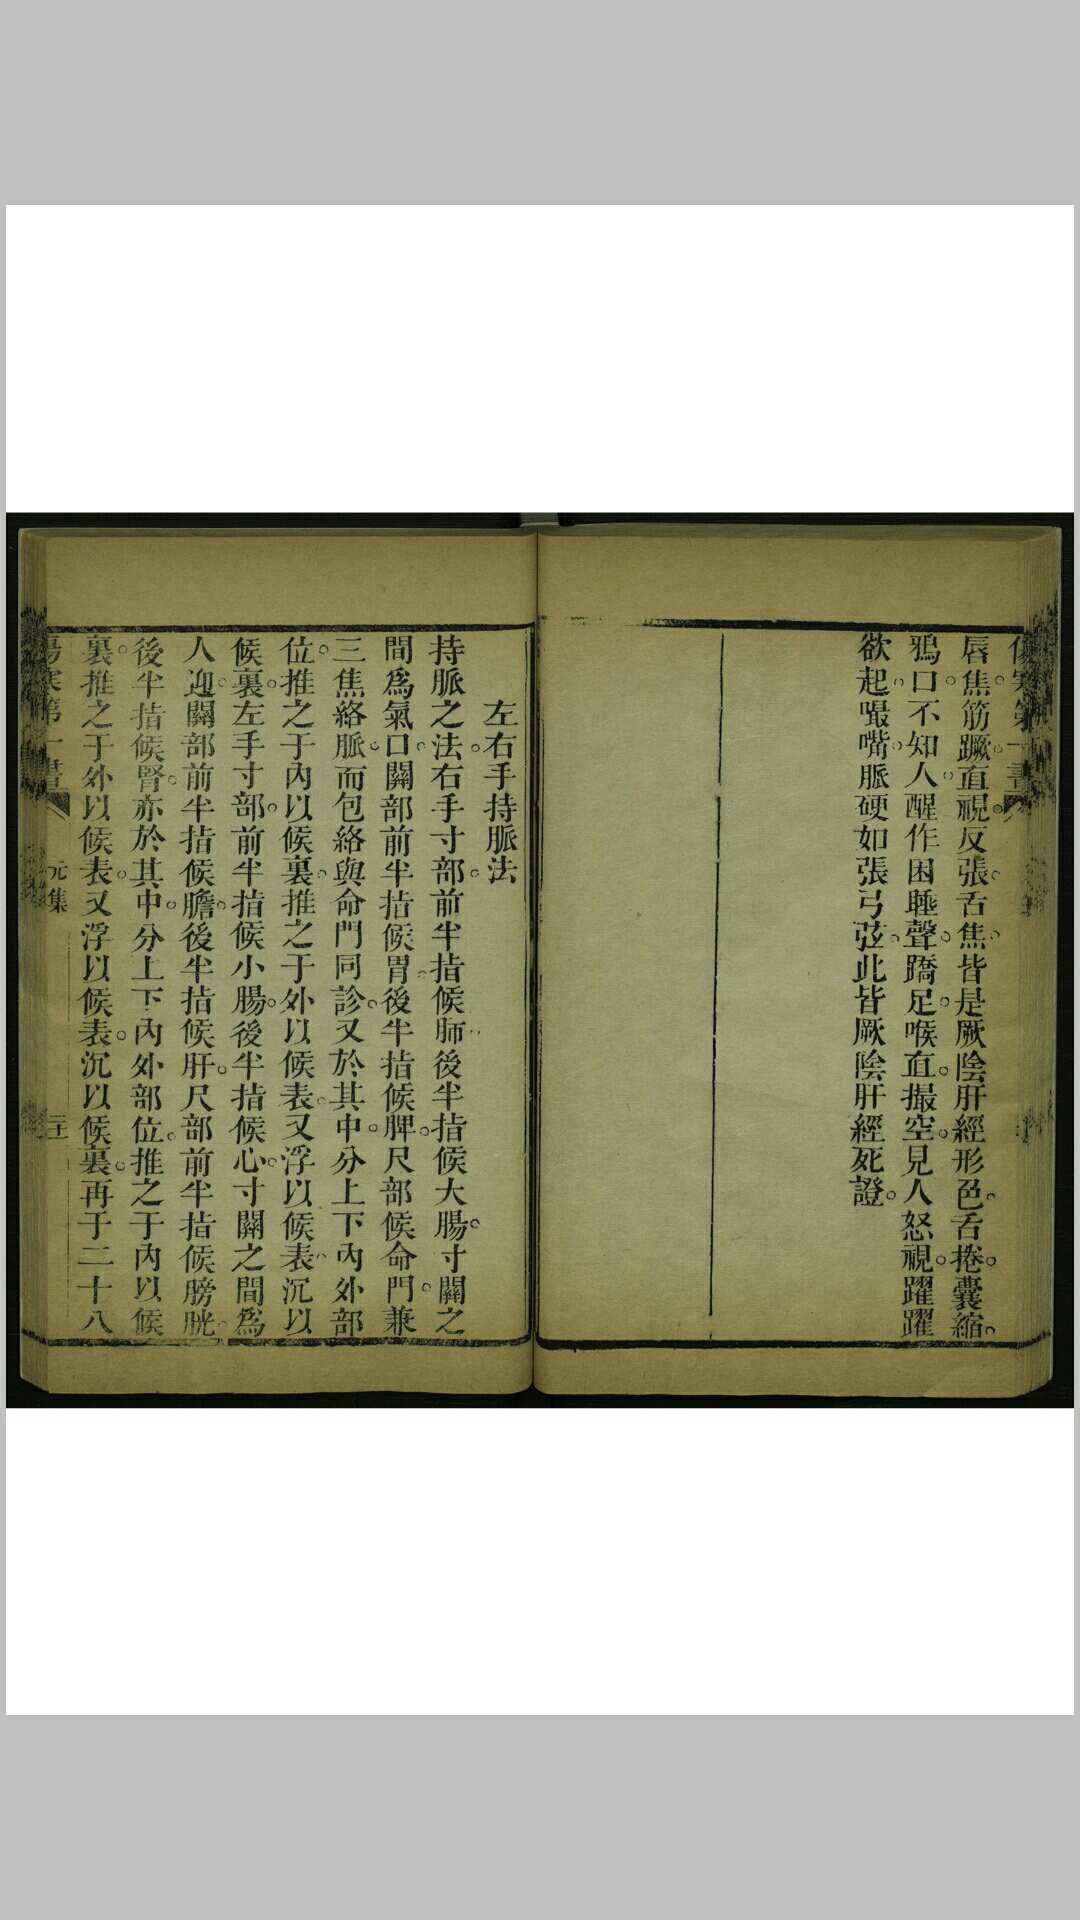 傷寒第一書
唇焦筋蹶直視反張舌焦皆是厥陰肝經形色舌捲囊縮
鴉口不知人醒作困睡聲蹻足喉直撮空見人怒視躍躍
欲起嘬嘴脈硬如張弓弦此皆厥陰肝經死證
左右手持脈法
持脈之法右手寸部前半指候肺後半指候大腸寸關之
間爲氣口關部前半指候胃後半指候脾尺部候命門兼
三焦絡脈而包絡與命門同診又於其中分上下內外部
位推之于內以候裏推之于外以候表又浮以候表沉以
候裏左手寸部前半指候小腸後半指候心寸關之間爲
人迎關部前半指候膽後半指候肝尺部前半指候膀胱
後半指候腎亦於其中分上下內外部位推之于內以候
裏推之于外以候表又浮以候表沉以候裏再于二十八
傷寒第一書 元集